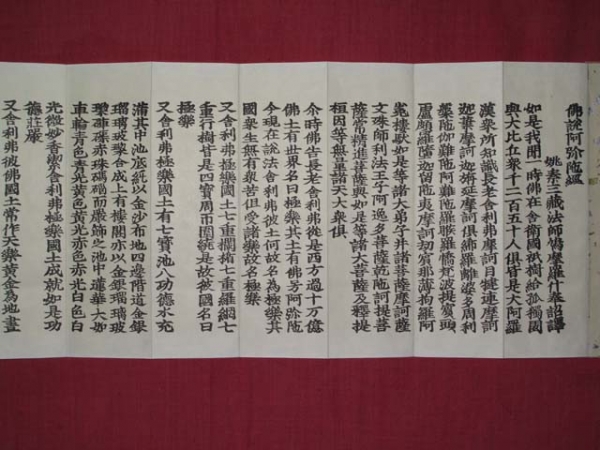 佛說阿弥陁經
姚秦三藏法師鳩摩羅什奉詔譯
如是我聞一時佛在舍衛國祇樹給孤獨園
與大比丘衆千二百五十人俱皆是大阿羅
漢衆所知識長老舍利弗摩訶目揵連摩訶
迦葉摩訶迦旃延摩訶俱絺羅離婆多周利
槃陁伽難陁阿難陁羅睺羅憍梵波提賓頭
盧頗羅墮迦留陁夷摩訶劫賓那薄拘羅阿
㝹樓馱如是等諸大弟子并諸菩薩摩訶薩
文殊師利法王子阿逸多菩薩乾陁訶提菩
薩常精進菩薩與如是等諸大菩薩及釋提
桓因等無量諸天大衆俱
介時佛告長老舍利弗從是西方過十万億
佛土有世界名曰極樂其土有佛号阿弥陁
今現在說法舍利弗彼土何故名為極樂其
國衆生無有衆苦但受諸樂故名極樂
又舍利弗極樂國土七重欄楯七重羅網七
重行樹皆是四寶周帀圍繞是故彼國名曰
極樂
又舍利弗極樂國土有七寶池八功德水充
滿其中池底純以金沙布地四邊階道金銀
瑠璃玻瓈合成上有樓閣亦以金銀瑠璃玻
瓈硨磲赤珠碼碯而嚴飾之池中蓮華大如
車輪青色青光黃色黃光赤色赤光白色白
光微妙香潔舍利弗極樂國土成就如是功
德莊嚴
又舍利弗彼佛國土常作天樂黃金為地晝